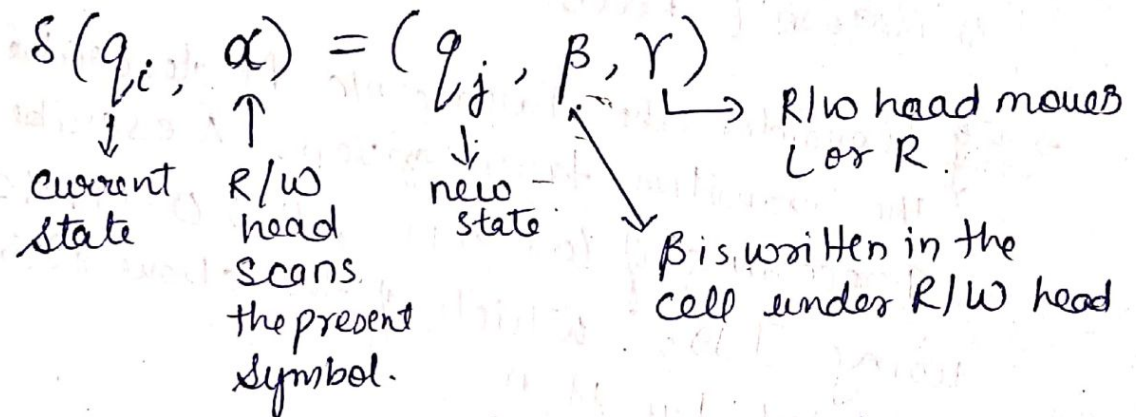 δ(qi, α) = (qj, β, γ)
current
state
R/W
head
scans
the present
symbol.
new
state
R/W head moves
L or R.
β is written in the
cell under R/W head